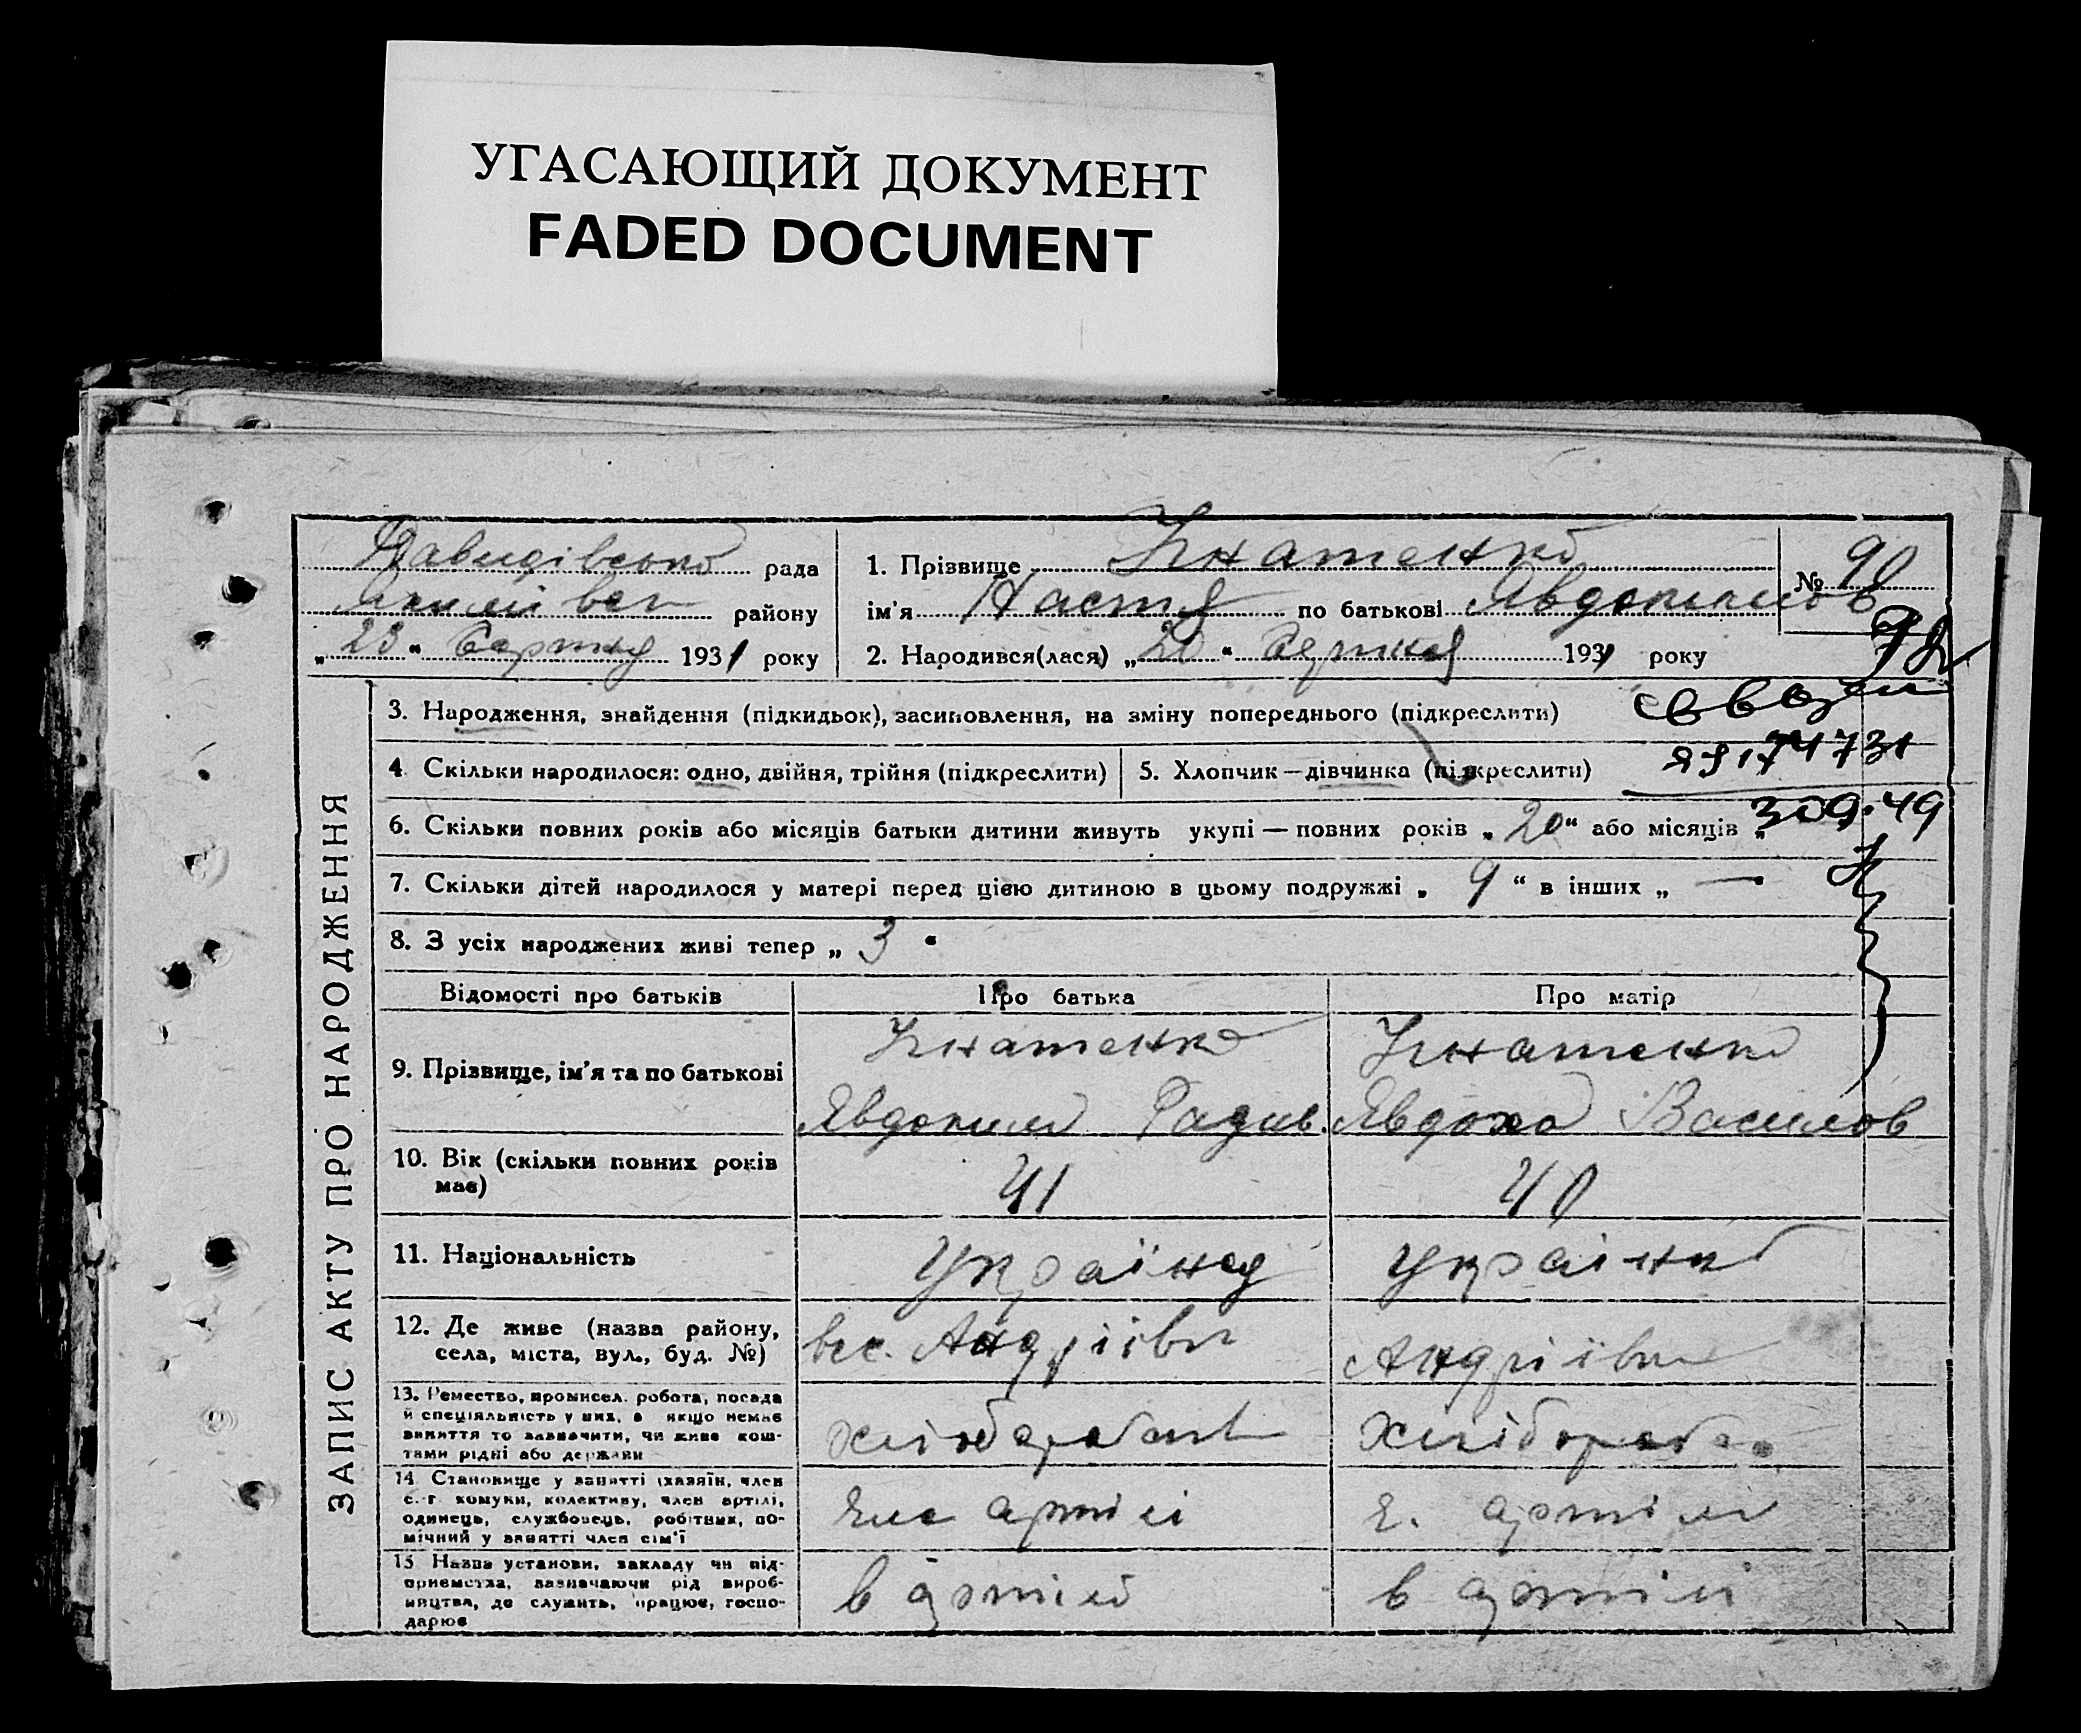 УГАСАЮЩИЙ ДОКУМЕНТ
FADED DOCUMENT
Давидівсько рада
району
„23“ Серпня 1931 року
1. Прізвище Гнатенко
№ 90
ім'я Настя по батькові Явдокимов
2. Народився(лася) „20“ Серпня 1931 року
78
ЗАПИС АКТУ ПРО НАРОДЖЕННЯ
3. Народження, знайдення (підкидьок), засиновлення, на зміну попереднього (підкреслити)
4. Скільки народилося: одно, двійня, трійня (підкреслити)
5. Хлопчик — дівчинка (підкреслити)
6. Скільки повних років або місяців батьки дитини живуть укупі — повних років „20“ або місяців „
30 9.49
7. Скільки дітей народилося у матері перед цією дитиною в цьому подружжі „9“ в інших „ —
8. З усіх народжених живі тепер „3“
Відомості про батьків Про батька Про матір
9. Прізвище, ім'я та по батькові
Гнатенко
Явдоким
Гнатенко
Явдоха Василов
10. Вік (скільки повних років має)
41 40
11. Національність
Україна
12. Де живе (назва району, села, міста, вул., буд. №)
вс. Андріївк
Андріївк
13. Ремество, промисел. робота, посада
й спеціяльність у них, а якщо немає
заняття то зазначити, чи живе кош-
тами рідні або держави
хліборобств
хлібороб
14. Становище у занятті (хазяїн, член
с.-г. комуни, колективу, член артілі,
одинець, службовець, робітник, по-
мічний у занятті член сім'ї
Чле артілі
ч. артілі
15. Назва установи, закладу чи під-
приємства, зазначаючи рід вироб-
ництва, де служить, працює, госпо-
дарює
в артілі
в артілі